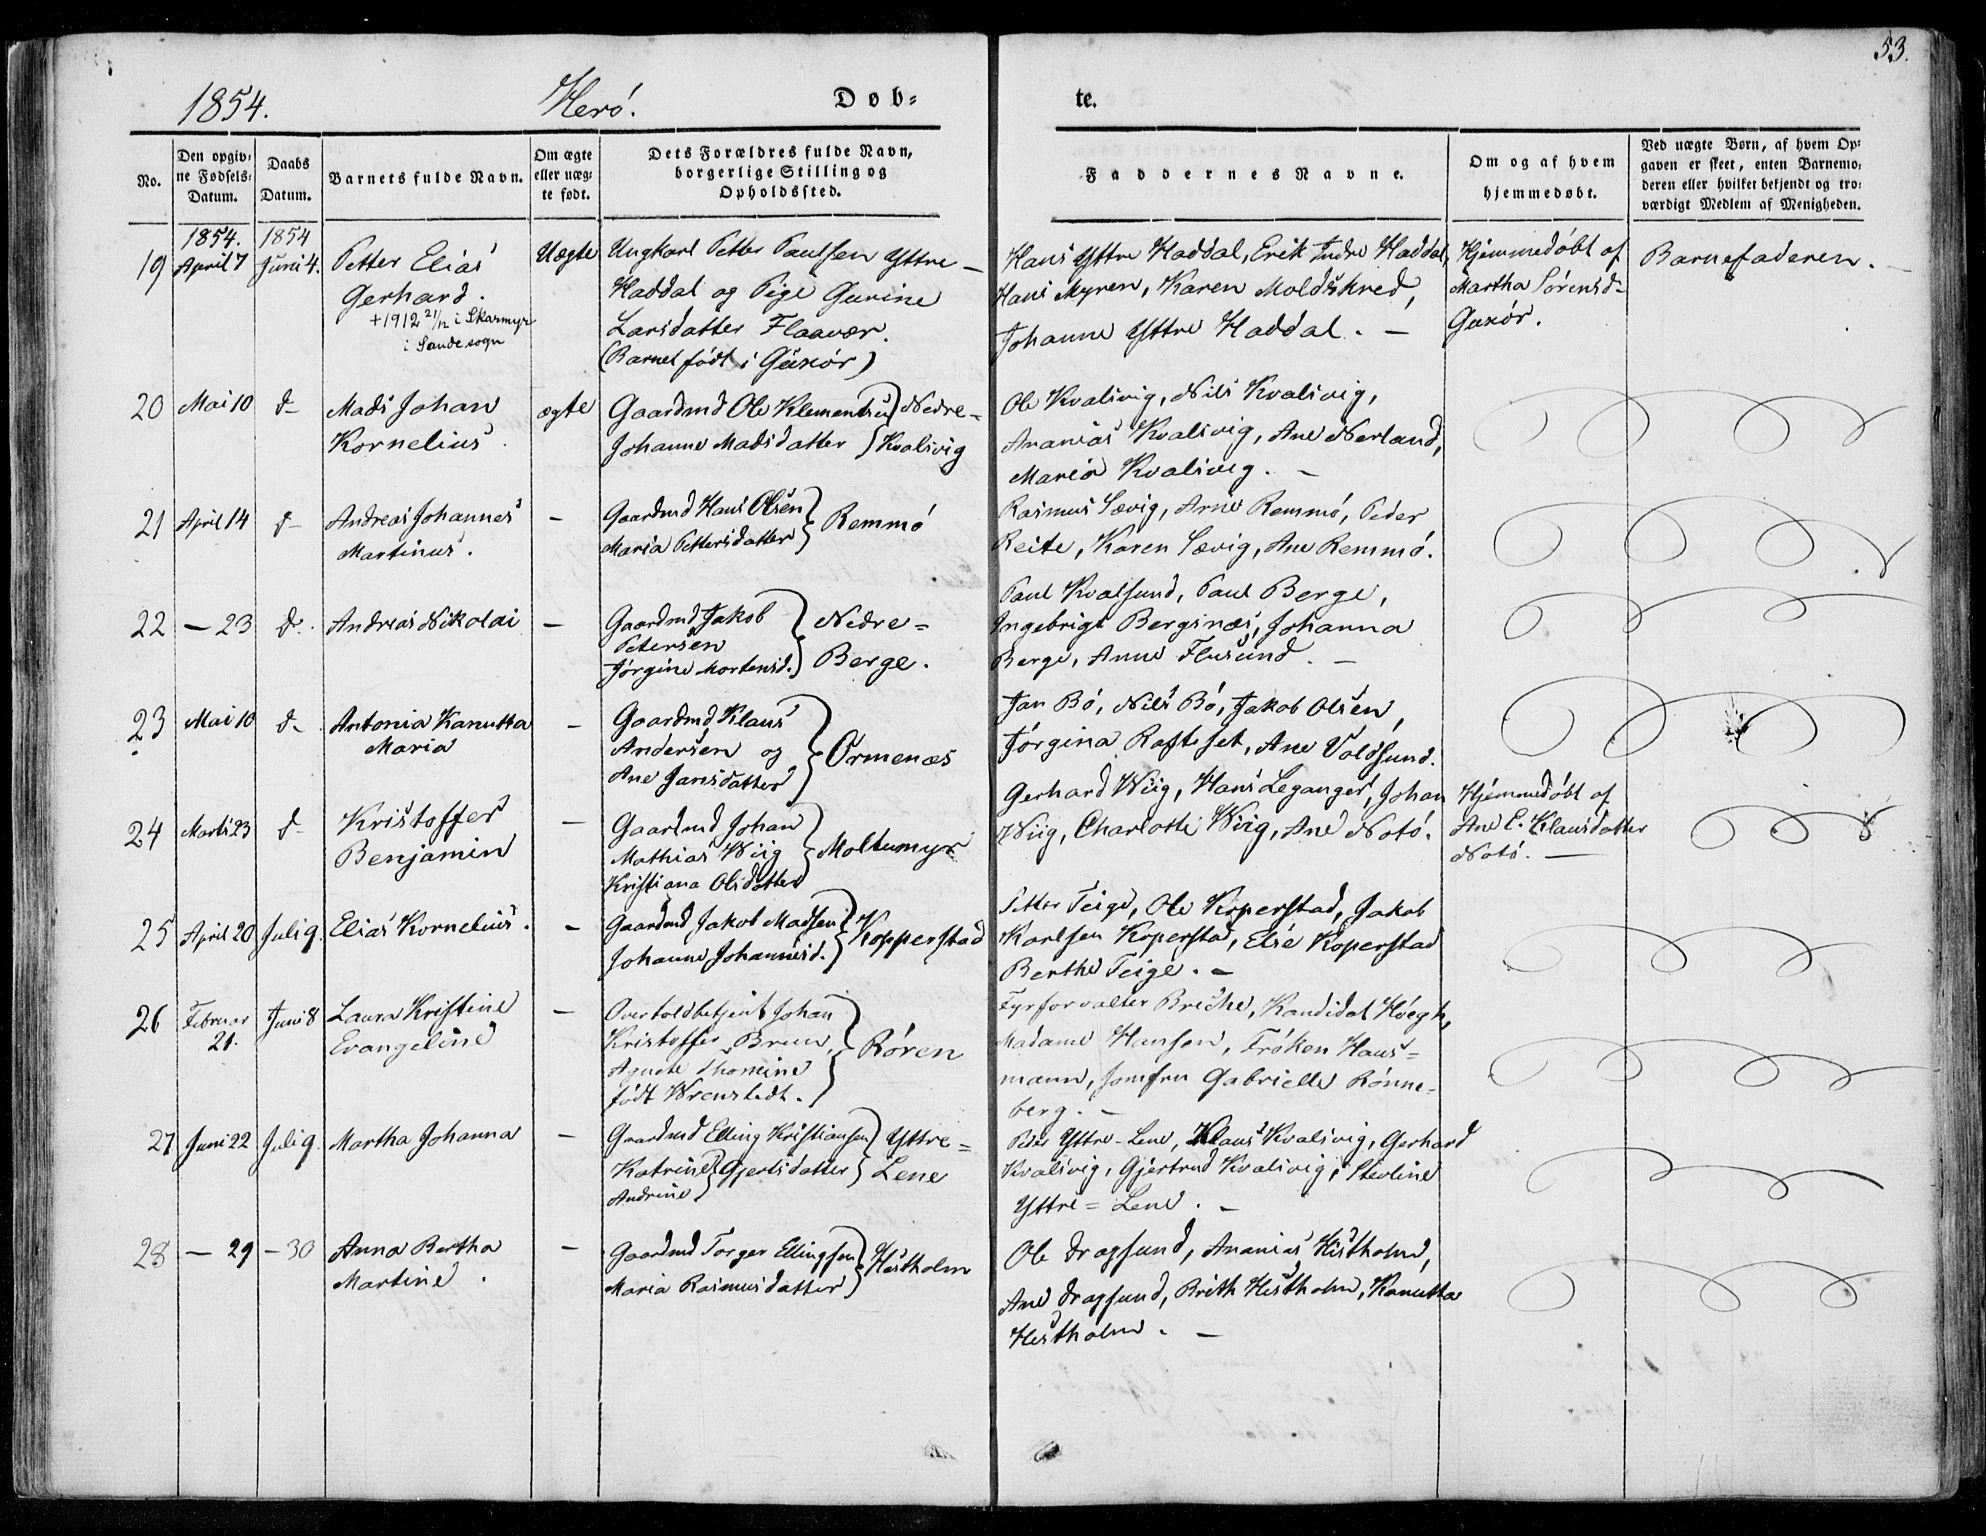 53.
1854. Herö. Døb= te.
No.
Den opgiv=
ne Fødsels=
Datum.
Daabs
Datum.
Barnets fulde Navn.
Om ægte
eller uæg=
te født.
Dets Forældres fulde Navn,
borgerlige Stilling og
Opholdssted.
Faddernes Navne.
Om og af hvem
hjemmedøbt.
Ved uægte Børn, af hvem Op=
gaven er skeet, enten Barnemo=
deren eller hvilket bekjendt og tro=
værdigt Medlem af Menigheden.
19
1854.
April 7
1854
Juni 4.
Petter Elias
Gerhard.
+1912 21/12 i Skarmyr
i Sande sogn
Uægte
Ungkarl Petter Paulsen Yttre –
Haddal og Pige Gurine
Larsdatter Flaavær.
(Barnet födt i Gurskör)
Hans Yttre Haddal, Erik Indre Haddal,
Hans Myren, Karen Moldskred,
Johanne Yttre Haddal. –
Hjemmedöbt af
Martha Sörensd.

Barnefaderen. –
20
Mai 10
d–
Mads Johan
Kornelius.
ægte
Gaardmd Ole Klementsen } Nedre=
Johanne Madsdatter } Kvalsvig
Ole Kvalsvig, Nils Kvalsvig,
Ananias Kvalsvig, Ane Nerland,
Maria Kvalsvig. –
21
April 14
d–
Andreas Johannes
Martinus.
–
Gaardmd Hans Olsen
Maria Pettersdatter } Remmö
Rasmus Sævig, Arne Remmö, Peder
Reite, Karen Sævig, Ane Remmö.
22
– 23
d–
Andreas Nikolai
–
Gaardmd Jakob
Petersen
Jörgine Mortensd. } Nedre=
Berge.
Paul Kvalsund, Paul Berge,
Ingebrigt Bergsnæs, Johanna
Berge, Anne Flusund. –
23
Mai 10
d–
Antonia Kanutta
Maria
–
Gaardmd Klaus
Andersen og
Ane Jansdatter } Ormenæs
Jan Bö, Nils Bö, Jakob Olsen,
Jörgina Rafteset, Ane Voldsund.
24
Marts 23
d–
Kristoffer
Benjamin
–
Gaardmd Johan
Mathias Wiig
Kristiana Olsdatter } Moltumyr
Gerhard Wiig, Hans Leganger, Johan
Wiig, Charlotte Wiig, Ane Notö.
Hjemmedöbt af
Ane E. Klausdatter
Notö. –
25
April 20
Juli 9.
Elias Kornelius.
–
Gaardmd Jakob Madsen
Johanne Johannesd. } Kopperstad
Petter Teige, Ole Koperstad, Jakob
Karlsen Koperstad, Else Koperstad
Berthe Teige. –
26
Februar
21.
Juni 8
Laura Kristine
Evangeline
–
Overtoldbetjent Johan
Kristoffer Bruun,
Agnete Thomine
födt Wrenstedt. } Rören
Fyrforvalter Breche, Kandidat Höegh,
Madame Hansen, Fröken Haus=
mann, Jomfru Gabrielle Rönne=
berg. –
27
Juni 22
Juli 9.
Martha Johanna
–
Gaardmd Elling Kristiansen } Yttre=
Katrine } Gjertsdatter } Lene
Andrine
Peder Yttre-Lene, Klaus Kvalsvig, Gerhard
Kvalsvig, Gjertrud Kvalsvig, Stevline
Yttre=Lene. –
28
– 29
– 30
Anna Bertha
Martine.
–
Gaardmd Torger Ellingsen
Maria Rasmusdatter } Hestholm
Ole Dragsund, Ananias Hestholm,
Ane Dragsund, Brith Hestholm, Kanutta
Hestholm. –